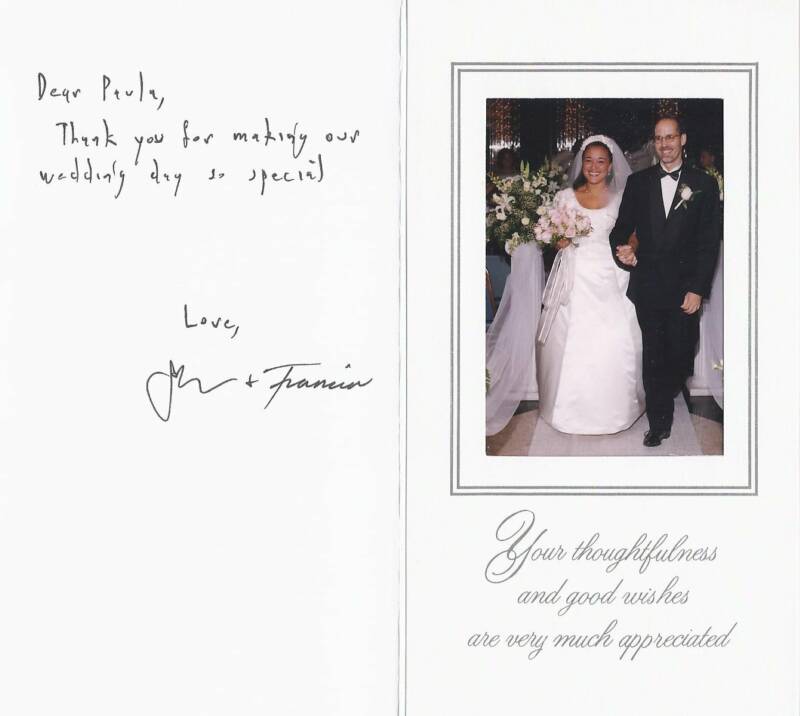 Dear Paula,
Thank you for making our
wedding day so special
Love,
+ Francin
Your thoughtfulness
and good wishes
are very much appreciated